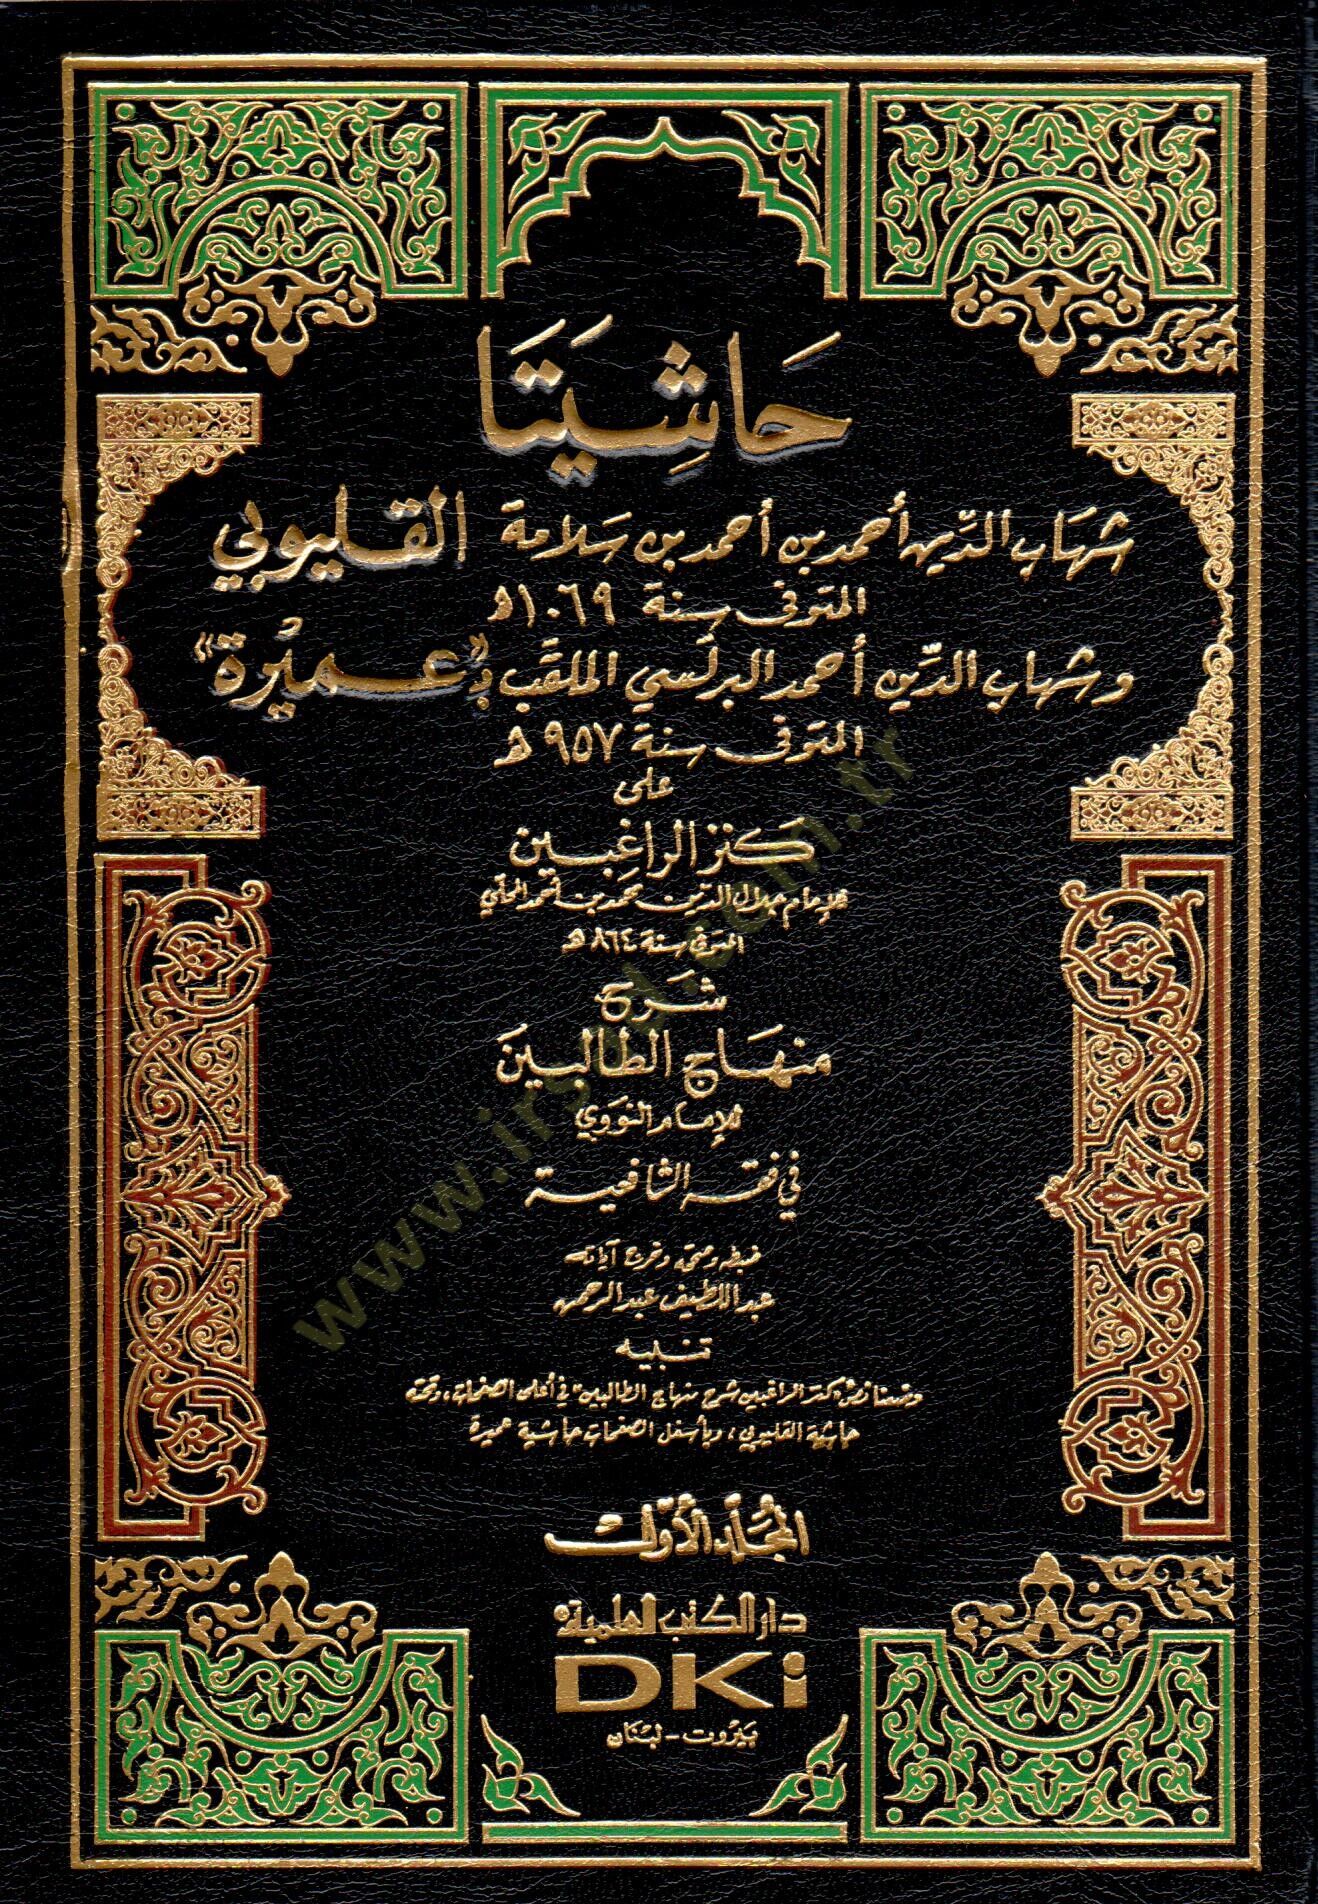 حَاشِيَتَا
شهَاب الدِّين أحمد بن أحمد بن سَلامة القليوبي
المتوفى سنة ١٠٦٩ هـ
وشهاب الدِّين أحمد البرلسي الملقَّب بـ"عميْرة"
المتوفى سنة ٩٥٧ هـ
على
كنز الراغِبين
للإمام جلال الدين محمد بن أحمد المحلي
المتوفى سنة ٨٦٤ هـ
شَرح
منهَاج الطالبينَ
للإمام النووي
في فقه الشافعية
ضبطه وصححه وخرج آياته
عبد اللطيف عبد الرحمن
تنبيه
وضعنا نص "كنز الراغبين شرح منهاج الطالبين" في أعلى الصفحات، وتحته
حاشية القليوبي، وبأسفل الصفحات حاشية عميرة
المجُلّد الأوّل
دار الكتب العلمية
DKi
بيروت - لبنان
www.irsad.com.tr